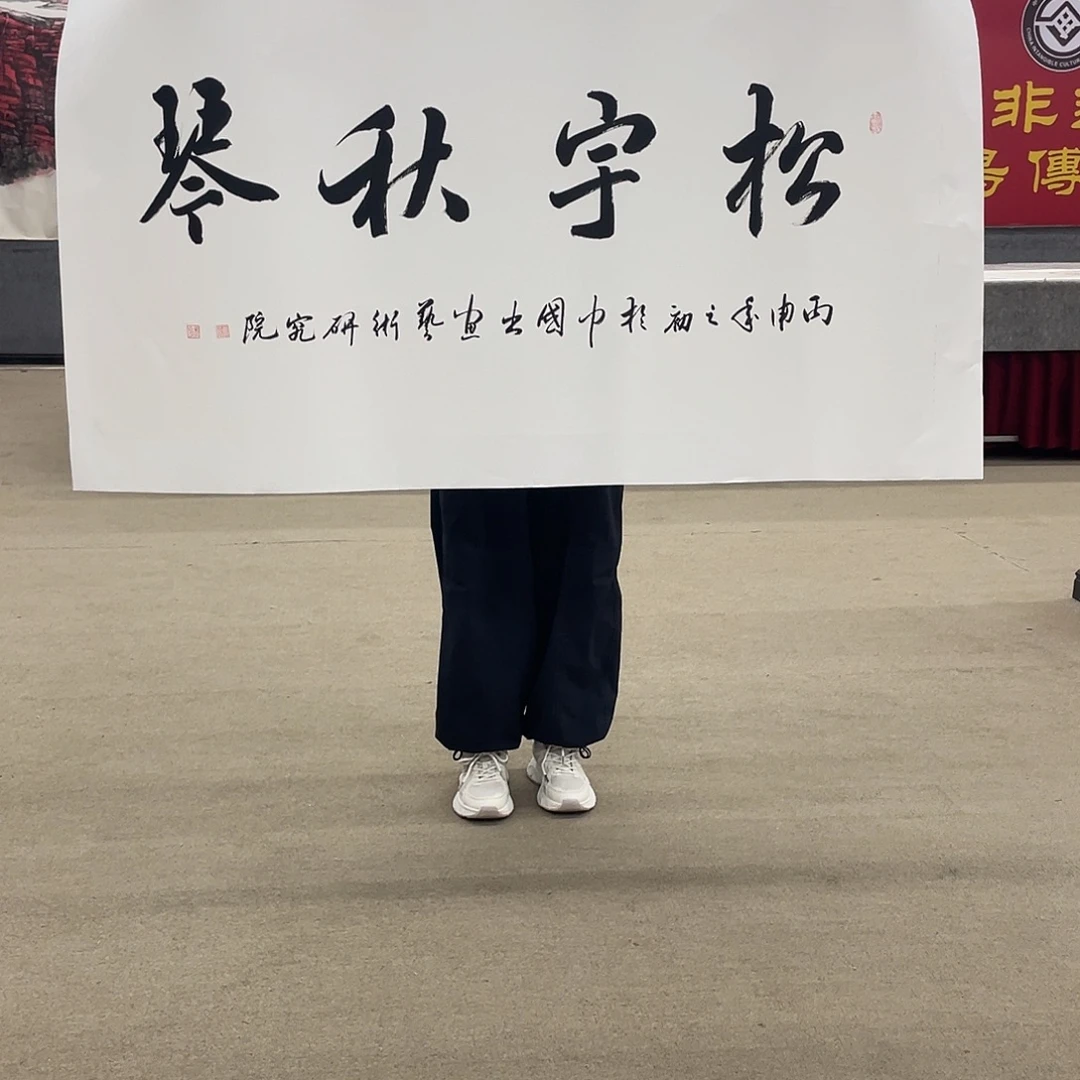 松宇秋琴
丙申季之初於中國书畫藝術研究院
CHINA INTANGIBLE
非
傳